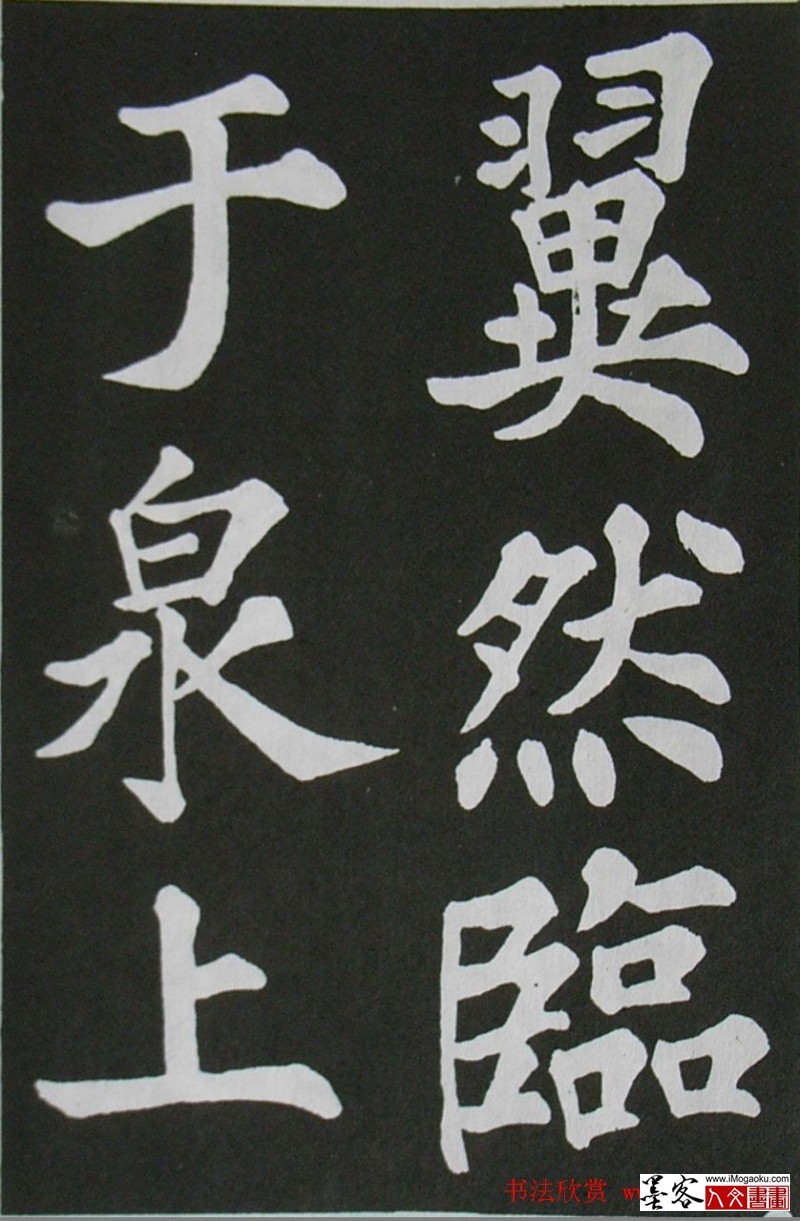 翼然臨
于泉上
书法欣赏 w
墨客 www.iMogaoku.com
人文書畫